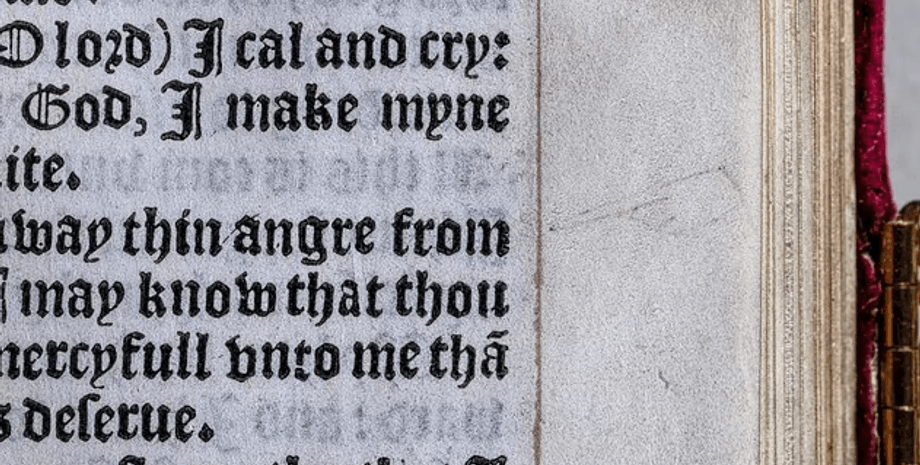 O lord) I cal and cry:
God, I make myne
ite.
way thin angre from
I may know that thou
mercyfull vnto me thã
s deſerue.